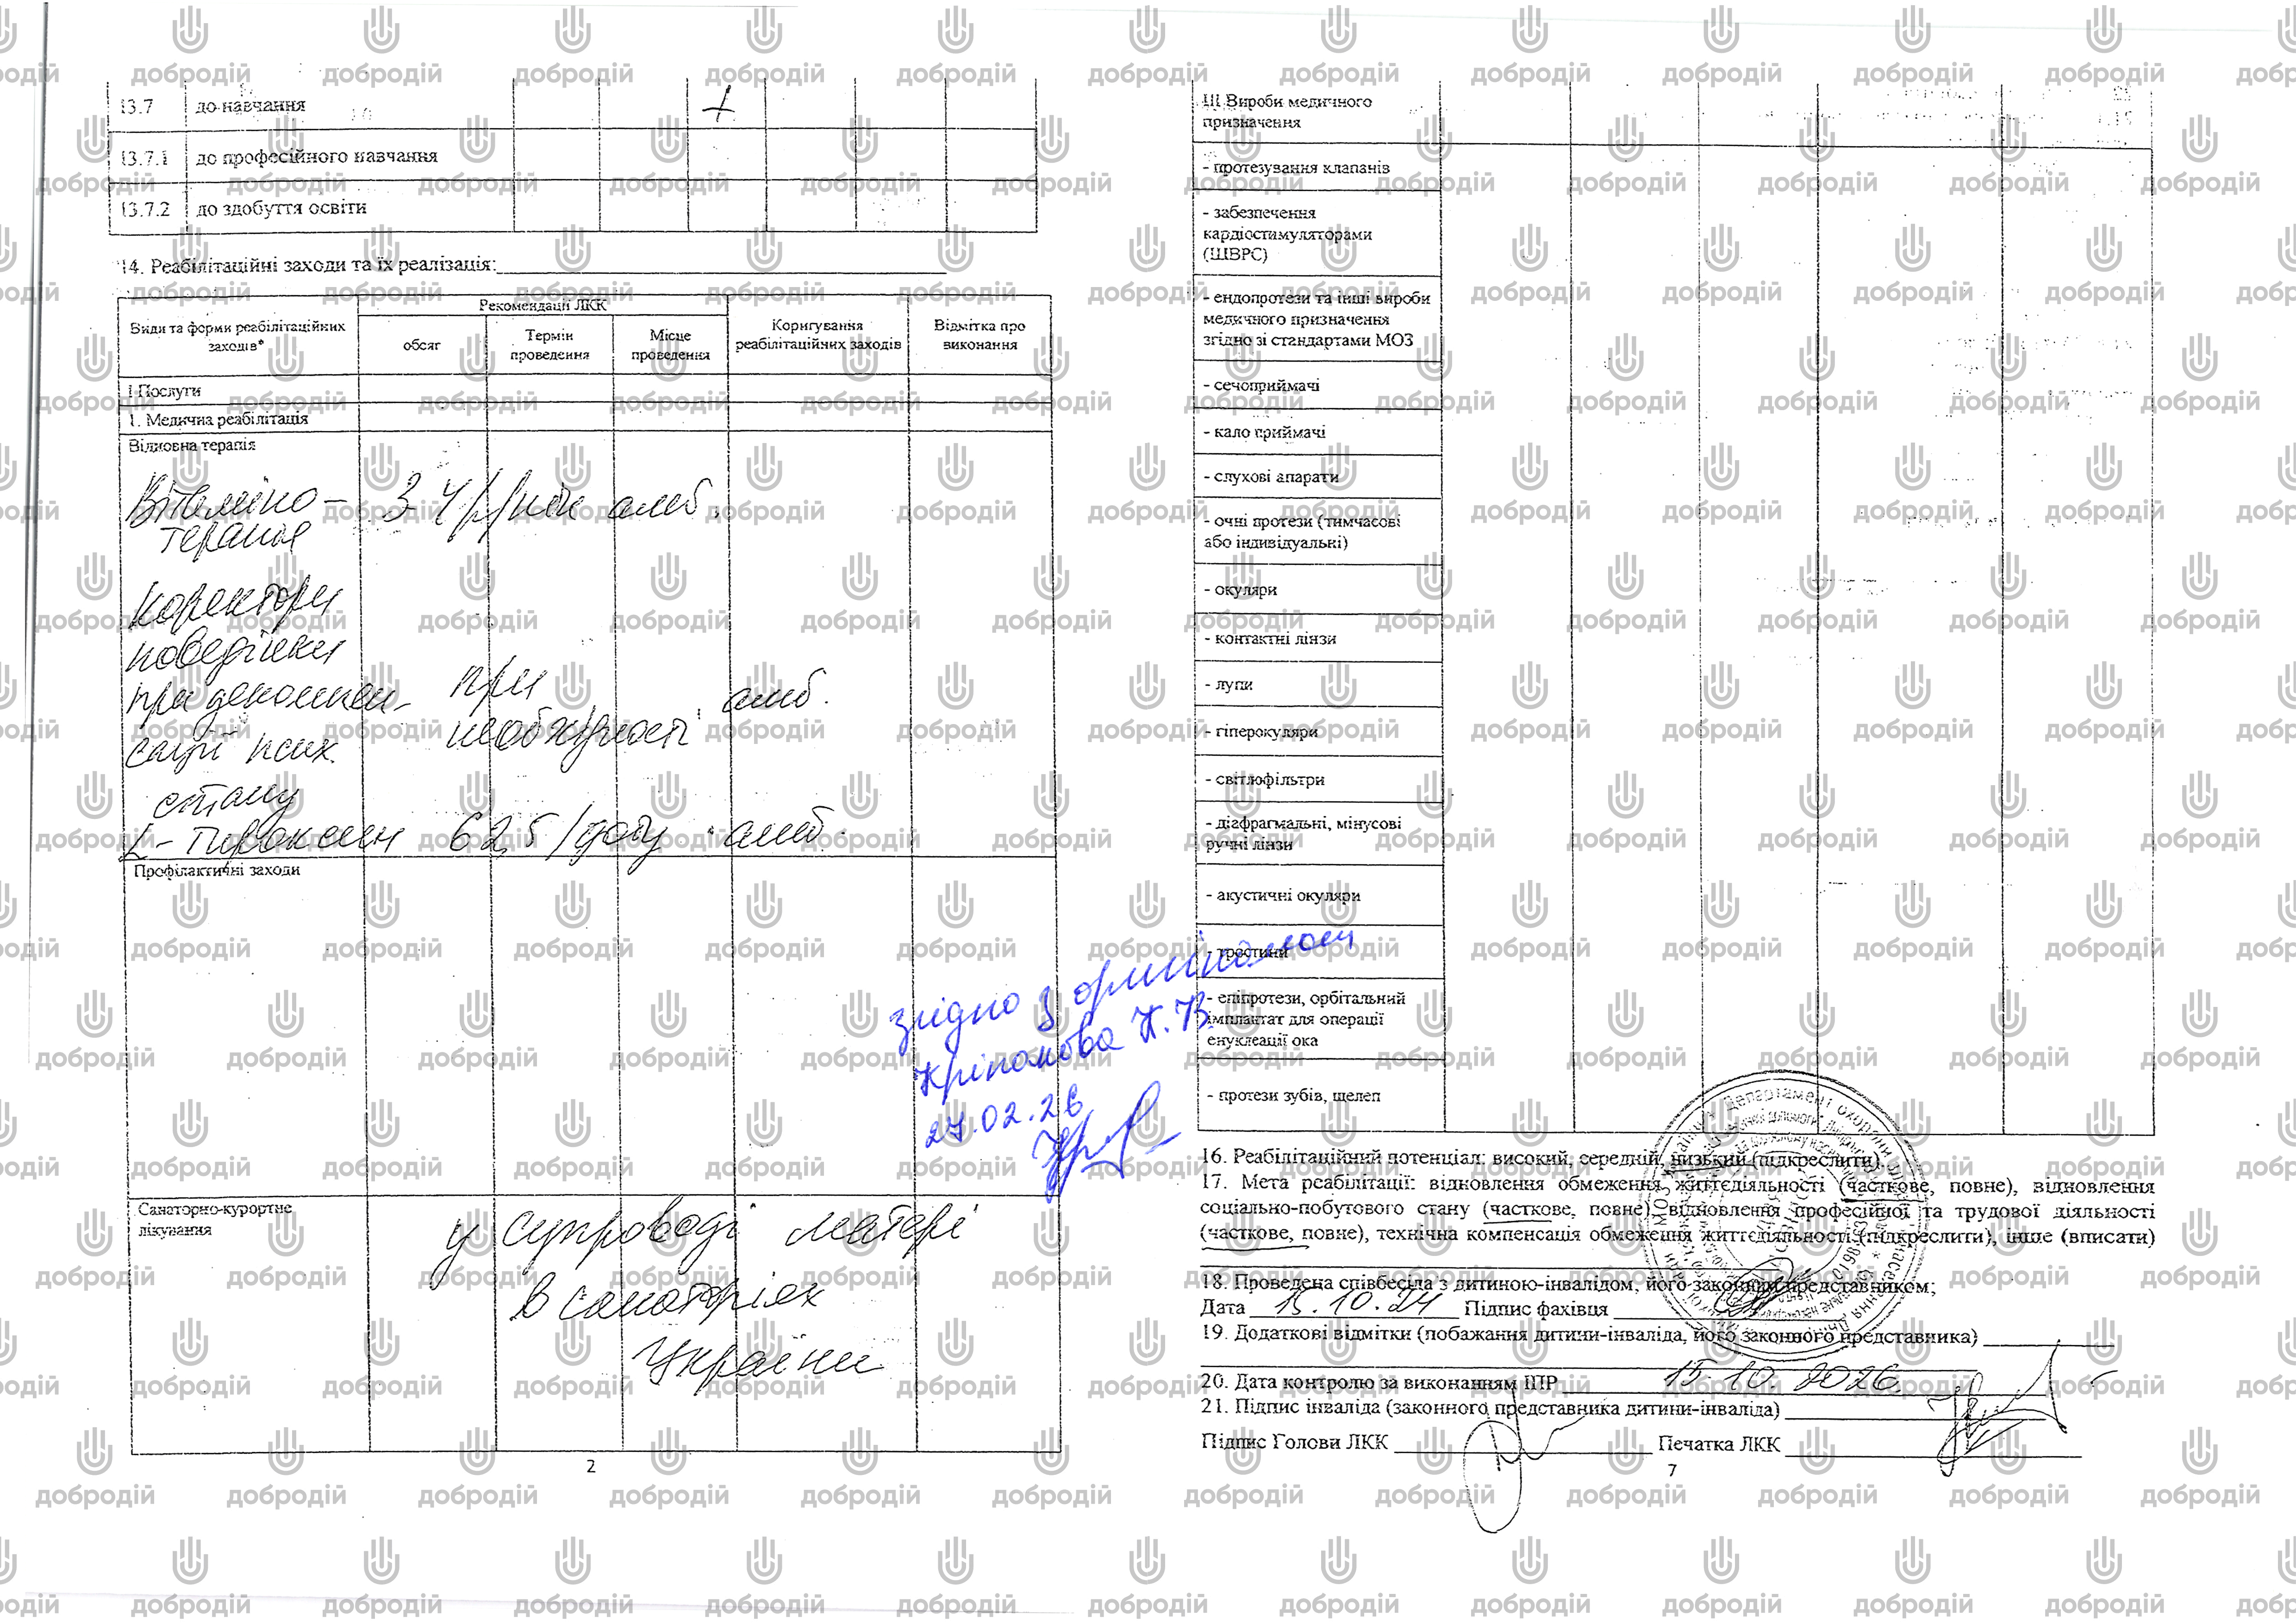 13.7 до навчання +
13.7.1 до професійного навчання
13.7.2 до здобуття освіти
14. Реабілітаційні заходи та їх реалізація:
Види та форми реабілітаційних заходів*
Рекомендації ЛКК
обсяг
Термін проведення
Місце проведення
Коригування реабілітаційних заходів
Відмітка про виконання
І Послуги
1. Медична реабілітація
Відновна терапія
Вітаміно- 3-4 р/рік амб.
терапія
Коректори
поведінки
при декомпен- при амб.
сації псих. необхідності
стану
L-тироксин 62,5 /добу амб.
Профілактичні заходи
Санаторно-курортне
лікування
у супроводі матері
в санаторіях
України
2
згідно з оригіналом
27.02.26
ІІІ Вироби медичного
призначення
- протезування клапанів
- забезпечення
кардіостимуляторами
(ШВРС)
- ендопротези та інші вироби
медичного призначення
згідно зі стандартами МОЗ
- сечоприймачі
- кало приймачі
- слухові апарати
- очні протези (тимчасові
або індивідуальні)
- окуляри
- контактні лінзи
- лупи
- гіперокуляри
- світлофільтри
- діафрагмальні, мінусові
ручні лінзи
- акустичні окуляри
- тростини
- епіпротези, орбітальний
імплантат для операції
енуклеації ока
- протези зубів, щелеп
16. Реабілітаційний потенціал: високий, середній, низький (підкреслити).
17. Мета реабілітації: відновлення обмеження життєдіяльності (часткове, повне), відновлення
соціально-побутового стану (часткове, повне), відновлення професійної та трудової діяльності
(часткове, повне), технічна компенсація обмеження життєдіяльності (підкреслити), інше (вписати)
18. Проведена співбесіда з дитиною-інвалідом, його законним представником;
Дата 15.10.24 Підпис фахівця
19. Додаткові відмітки (побажання дитини-інваліда, його законного представника)
20. Дата контролю за виконанням ІПР 15.10.2026
21. Підпис інваліда (законного представника дитини-інваліда)
Підпис Голови ЛКК Печатка ЛКК
7
добродій